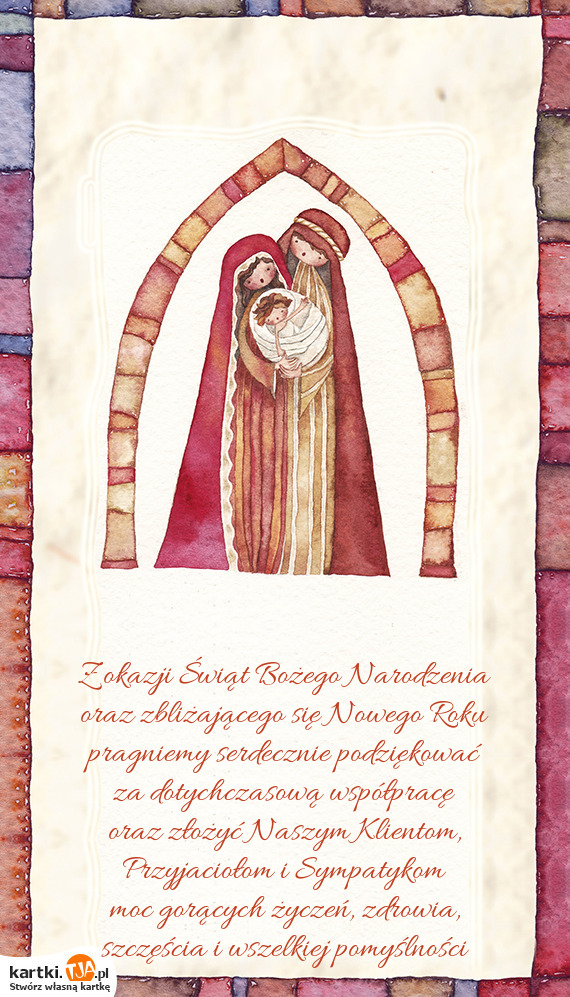 Z okazji Świąt Bożego Narodzenia
oraz zbliżającego się Nowego Roku
pragniemy serdecznie podziękować
za dotychczasową współpracę
oraz złożyć Naszym Klientom,
Przyjaciołom i Sympatykom
moc gorących życzeń, zdrowia,
szczęścia i wszelkiej pomyślności
kartki.TJA.pl
Stwórz własną kartkę